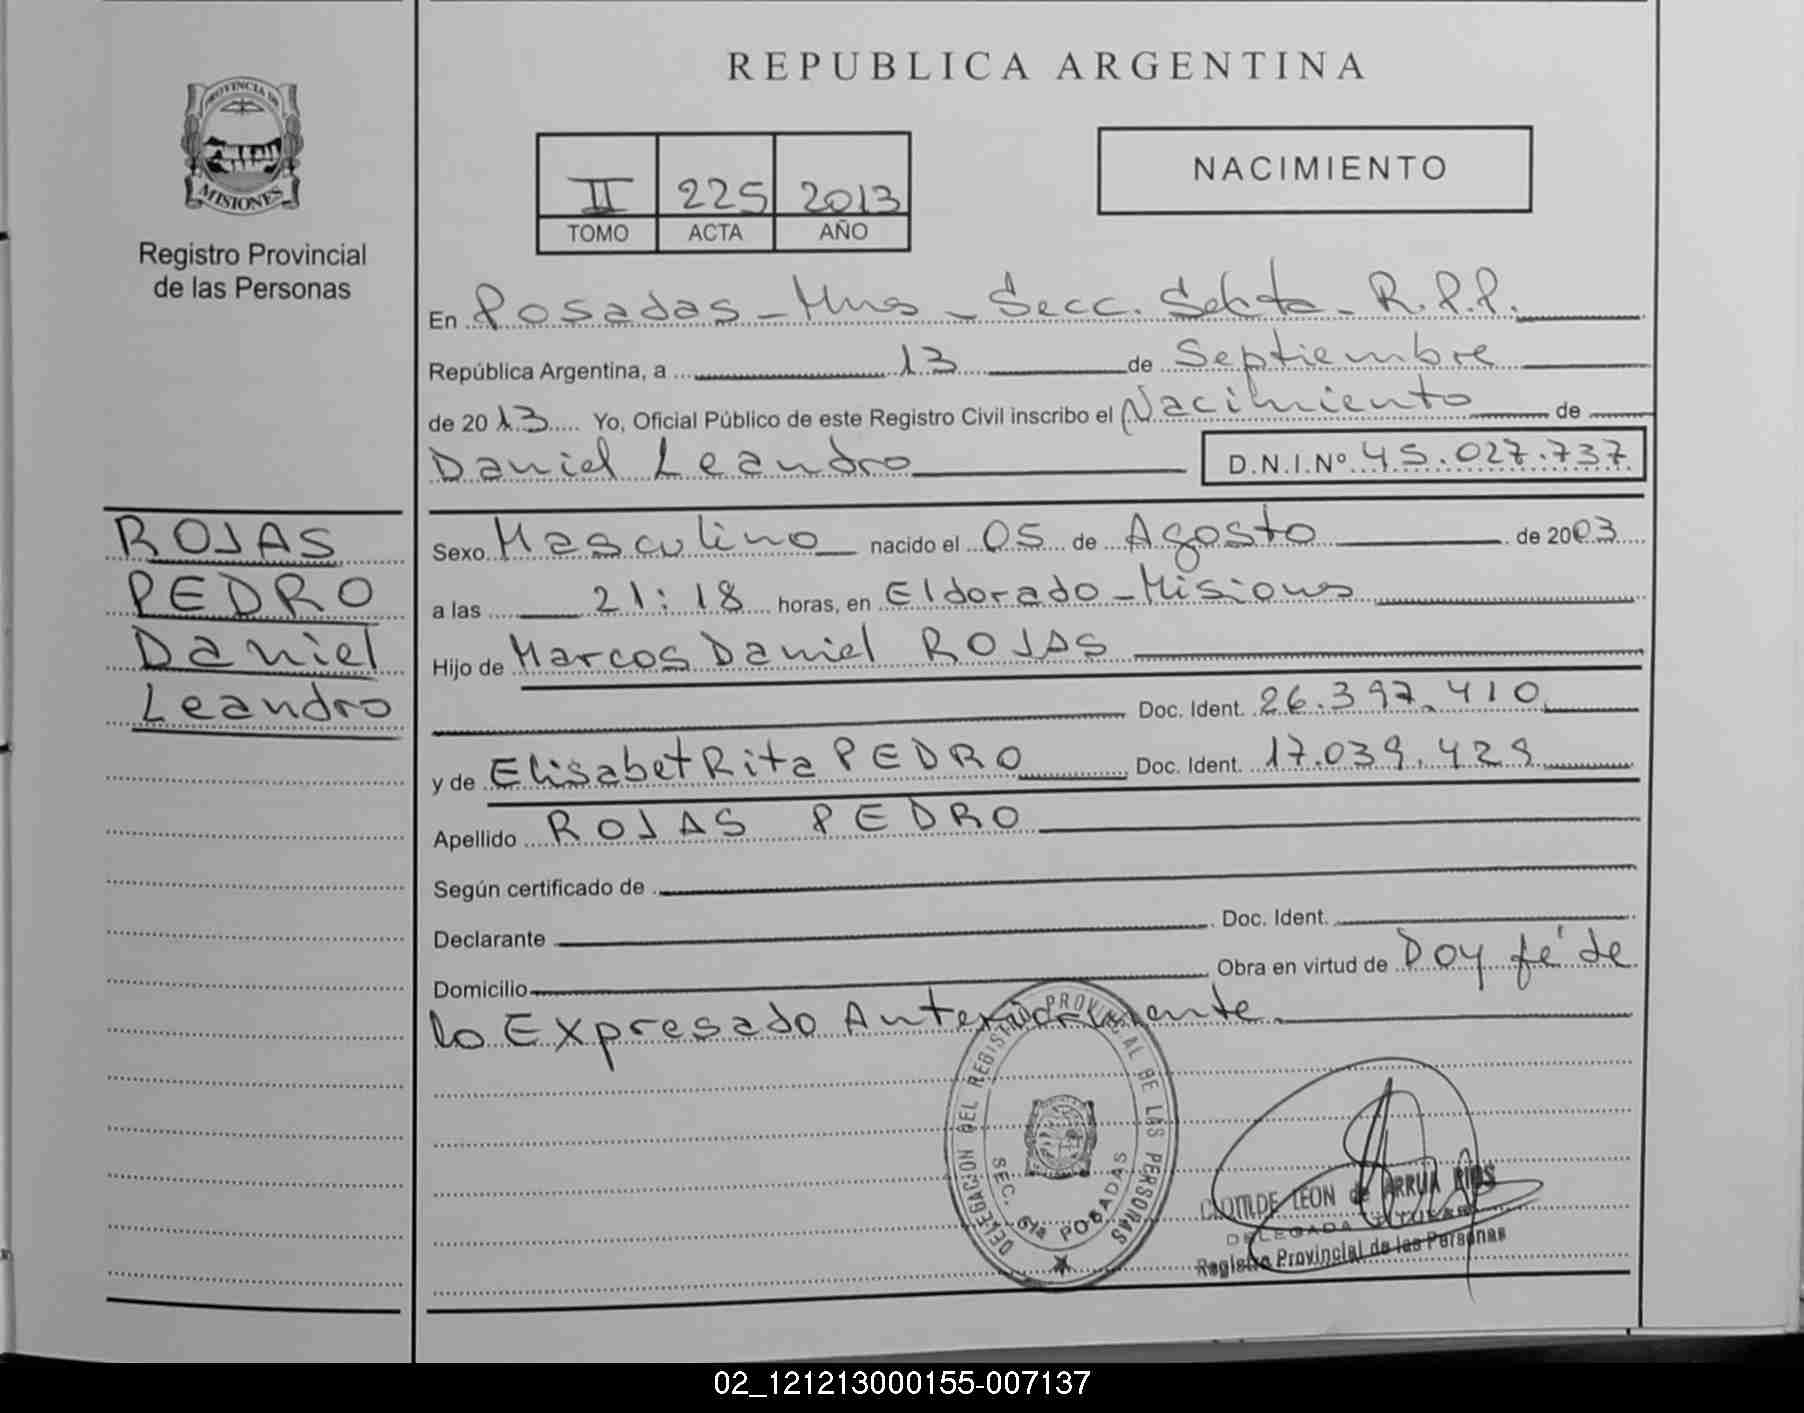 REPUBLICA ARGENTINA
PROVINCIA DE
MISIONES
Registro Provincial
de las Personas
NACIMIENTO
II 225 2013
TOMO ACTA AÑO
En Posadas - Mnes - Secc. Sexta - R.P.P.
República Argentina, a 13 de Septiembre
de 2013 Yo, Oficial Público de este Registro Civil inscribo el Nacimiento de
Daniel Leandro D.N.I.Nº 45.027.737
ROJAS
PEDRO
Daniel
Leandro
Sexo Masculino nacido el 05 de Agosto de 2003
a las 21:18 horas, en Eldorado - Misiones
Hijo de Marcos Daniel ROJAS
Doc. Ident. 26.397.410
y de Elisabet Rita PEDRO Doc. Ident. 17.039.429
Apellido ROJAS PEDRO
Según certificado de
Declarante Doc. Ident.
Domicilio Obra en virtud de Doy fé de
lo Expresado Anteriormente
DELEGACION DEL REGISTRO PROVINCIAL DE LAS PERSONAS
SEC. 6ta POSADAS
CLOTILDE LEON de ARRUA RIOS
DELEGADA TITULAR
Registro Provincial de las Personas
02_121213000155-007137